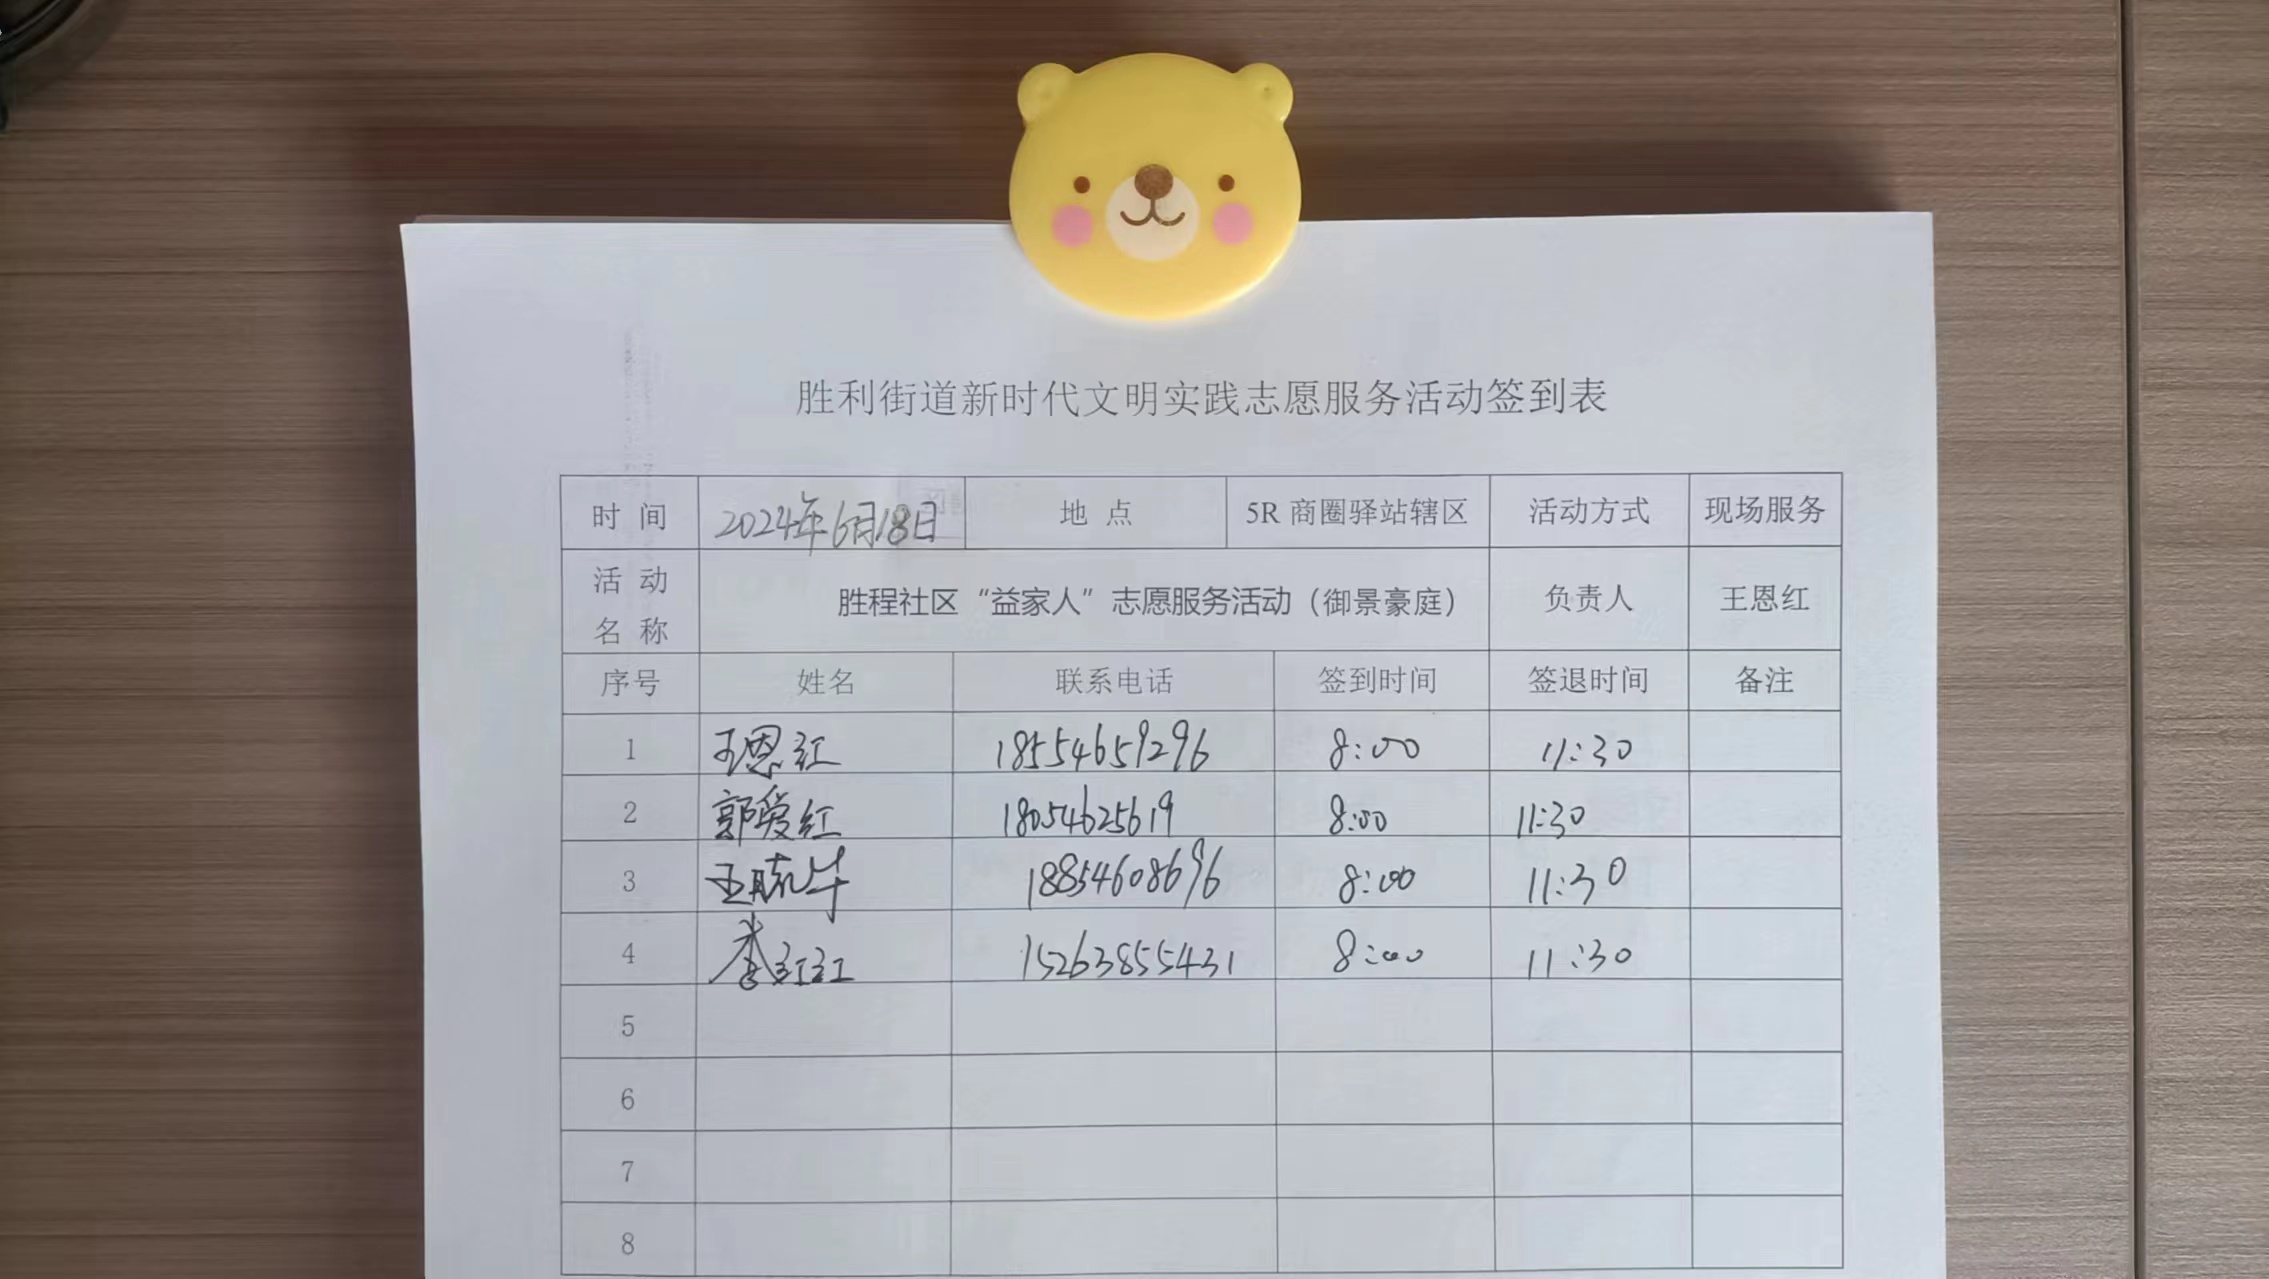 胜利街道新时代文明实践志愿服务活动签到表
时 间 2024年6月18日 地 点 5R 商圈驿站辖区 活动方式 现场服务
活 动 名 称 胜程社区“益家人”志愿服务活动（御景豪庭） 负责人 王恩红
序号 姓名 联系电话 签到时间 签退时间 备注
1 王恩红 18554659296 8:00 11:30
2 郭爱红 18054625619 8:00 11:30
3 王 18854608696 8:00 11:30
4 李红红 15263855431 8:00 11:30
5
6
7
8